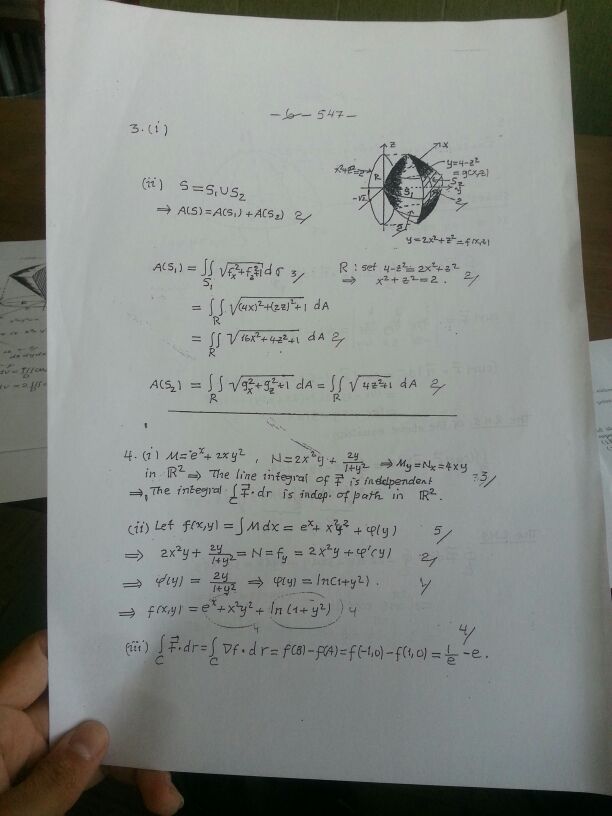 -6- 547-
3. (i)
z
x
y=4-z²
= g(x,z)
R
S₁
S₂
y
-√2
2
y=2x²+z²=f(x,z)
(ii) S = S₁ ∪ S₂
⇒ A(S) = A(S₁) + A(S₂) 2/
A(S₁) = ∬_S₁ √(fₓ²+f_z²+1) dσ 3/
R : set 4-z² = 2x²+z²
⇒ x² + z² = 2 . 2/
= ∬_R √((4x)²+(2z)²+1) dA
= ∬_R √(16x²+4z²+1) dA 2/
A(S₂) = ∬_R √(gₓ²+g_z²+1) dA = ∬_R √(4z²+1) dA 2/
4. (i) M = eˣ + 2xy² , N = 2x²y + 2y/(1+y²) ⇒ M_y = N_x = 4xy
in ℝ² ⇒ The line integral of F⃗ is independent 3/
⇒, The integral ∫_C F⃗·dr is indep. of path in ℝ².
(ii) Let f(x,y) = ∫ M dx = eˣ + x²y² + φ(y) 5/
⇒ 2x²y + 2y/(1+y²) = N = f_y = 2x²y + φ'(y) 2/
⇒ φ'(y) = 2y/(1+y²) ⇒ φ(y) = ln(1+y²) .
⇒ f(x,y) = eˣ + x²y² + ln(1+y²) 4
4
4/
(iii) ∫_C F⃗·dr = ∫_C ∇f·dr = f(B) - f(A) = f(-1,0) - f(1,0) = 1/e - e.